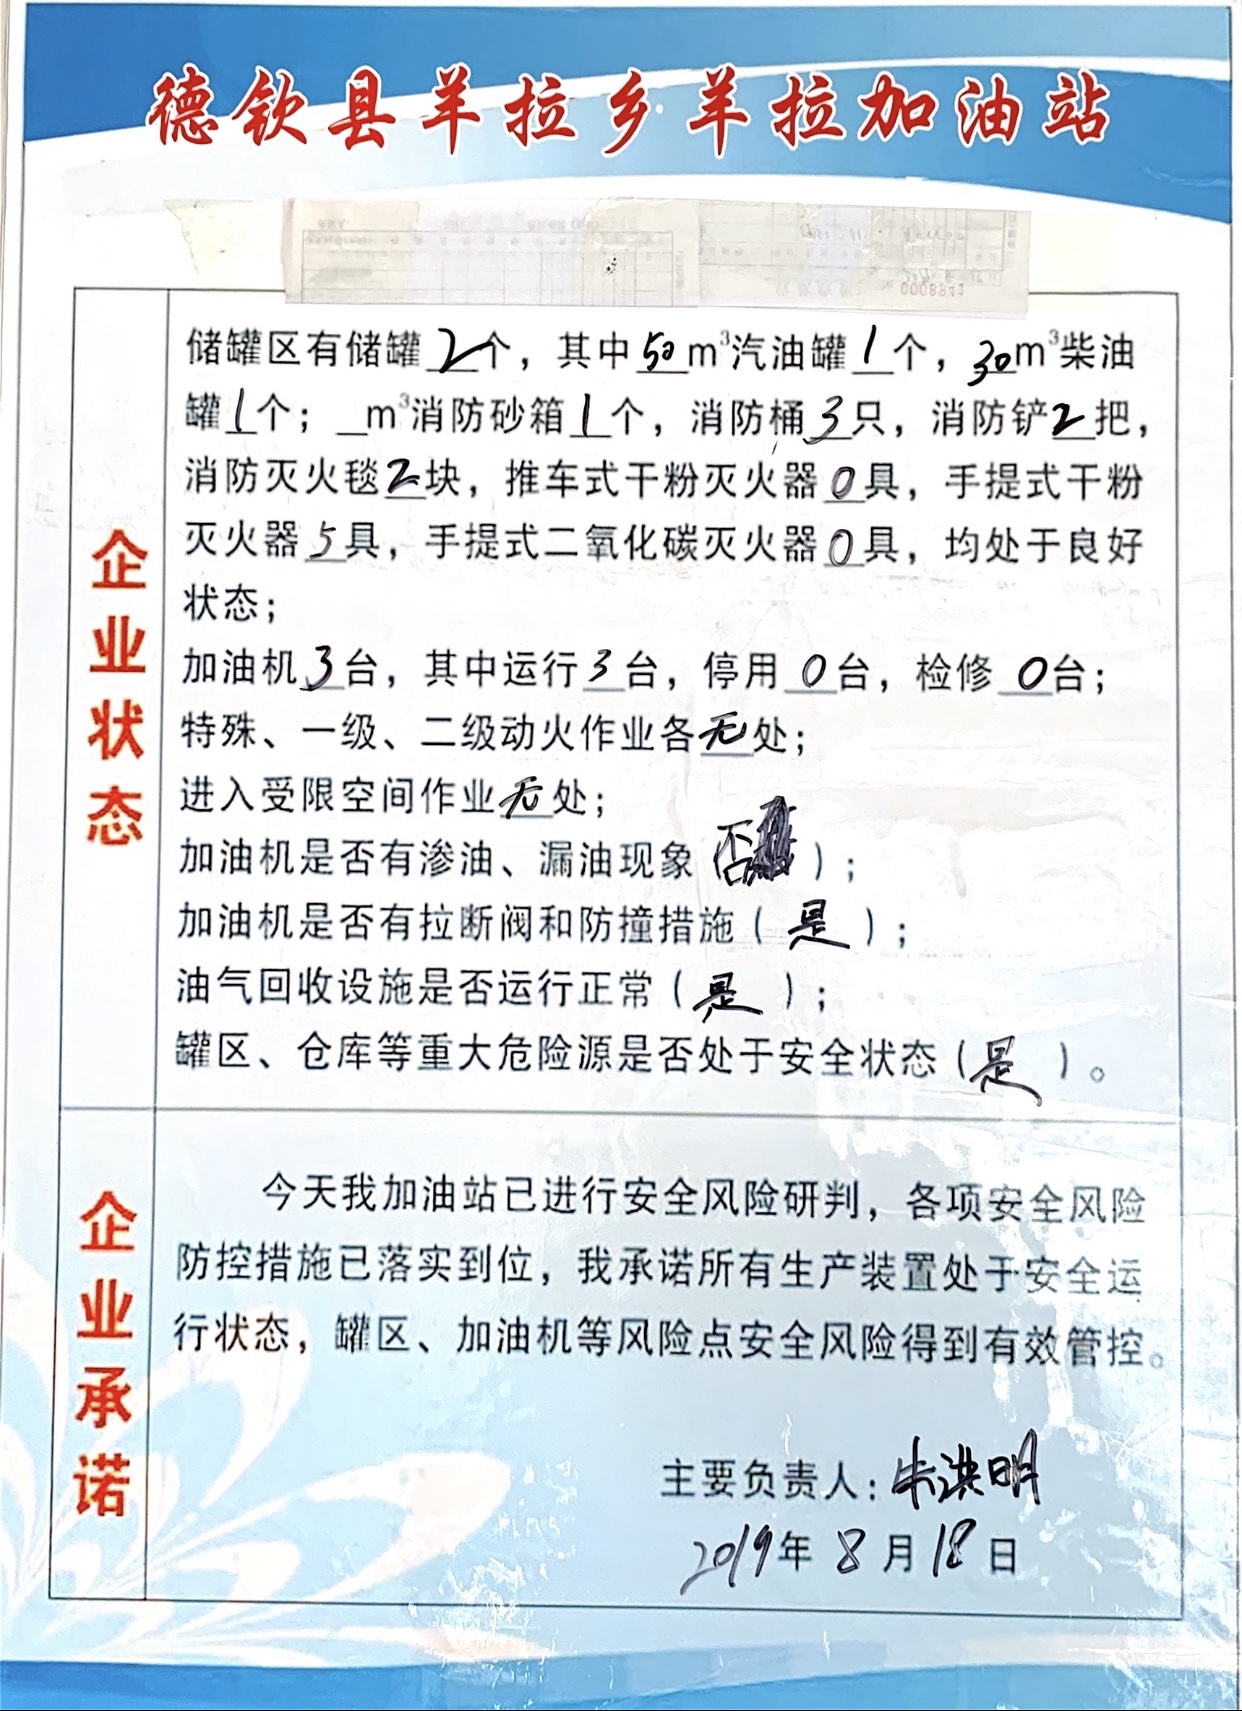 德钦县羊拉乡·羊拉加油站
0008941
企业状态
储罐区有储罐2个，其中50m³汽油罐1个，30m³柴油
罐1个；_m³消防砂箱1个，消防桶3只，消防铲2把，
消防灭火毯2块，推车式干粉灭火器0具，手提式干粉
灭火器5具，手提式二氧化碳灭火器0具，均处于良好
状态；
加油机3台，其中运行3台，停用0台，检修0台；
特殊、一级、二级动火作业各无处；
进入受限空间作业无处；
加油机是否有渗油、漏油现象（否）；
加油机是否有拉断阀和防撞措施（是）；
油气回收设施是否运行正常（是）；
罐区、仓库等重大危险源是否处于安全状态（是）。
企业承诺
今天我加油站已进行安全风险研判，各项安全风险
防控措施已落实到位，我承诺所有生产装置处于安全运
行状态，罐区、加油机等风险点安全风险得到有效管控。
主要负责人：朱洪明
2019年8月18日